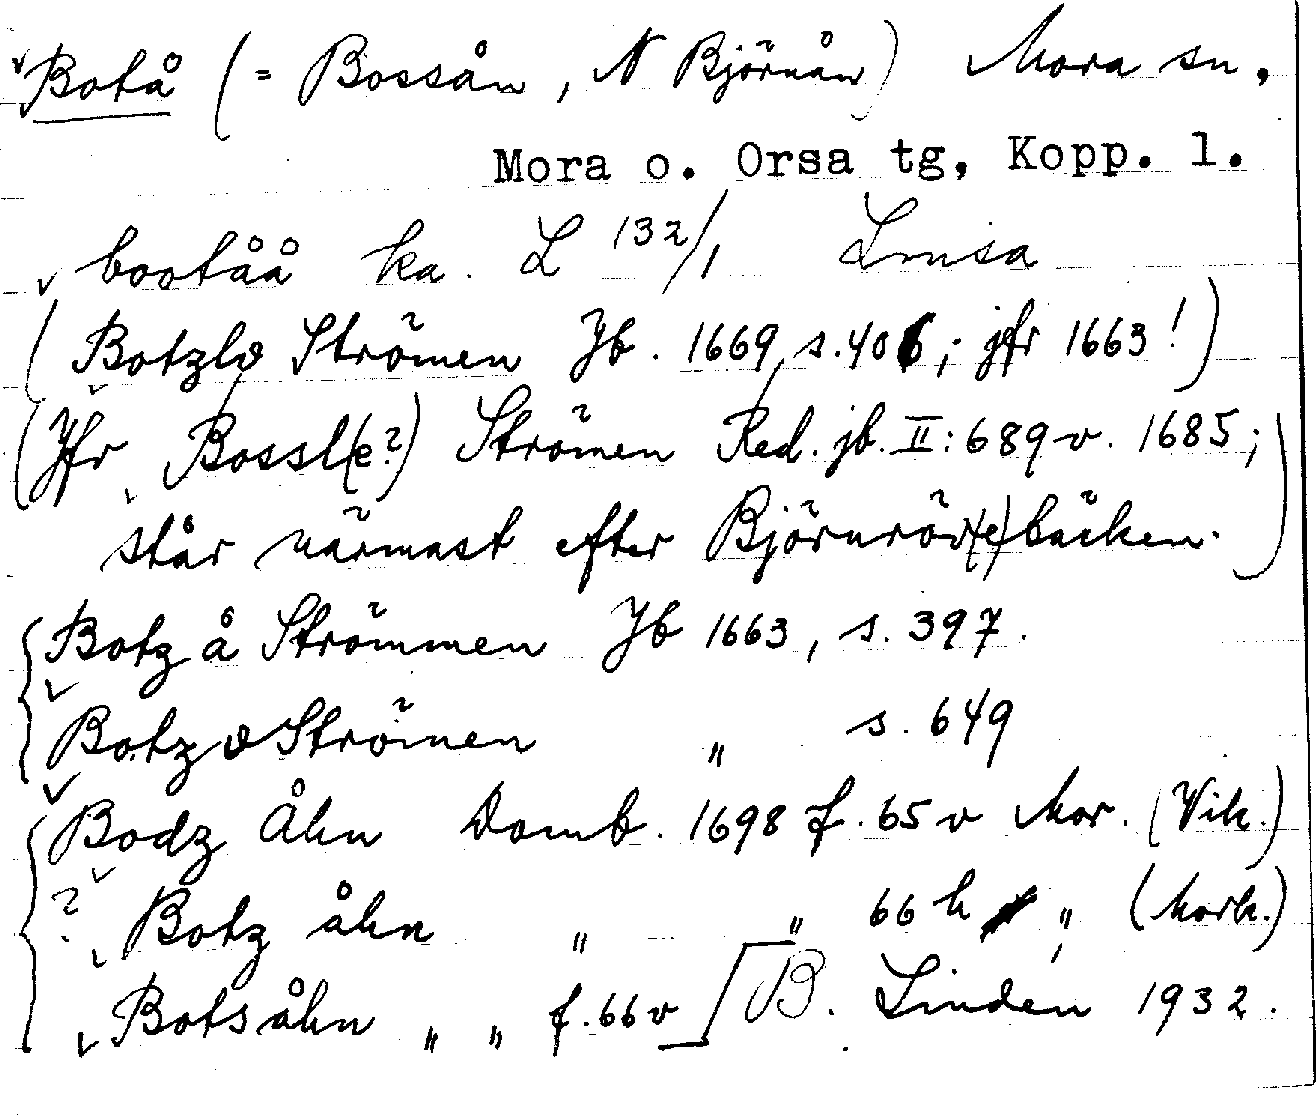 Botå (= Bossån, N Björnån) Mora sn,
Mora o. Orsa tg, Kopp. l.
bootåå ka. L 132/1 Limsa
(Botzlo Strömen Jb. 1669, s. 406; jfr 1663!)
(Jfr Bossl(e?) Strömen Red. jb. II: 689 v. 1685;
står närmast efter Björnröd(e)bäcken.)
Botz å Strömmen Jb 1663, s. 397.
Botz o Strömen " s. 649
Bodz Åhn Domb. 1698 f. 65 v Mor. (Vik.)
? Botz åhn " " 66 h " (Mork.)
Botsåhn " " f. 66 v B. Lindén 1932.